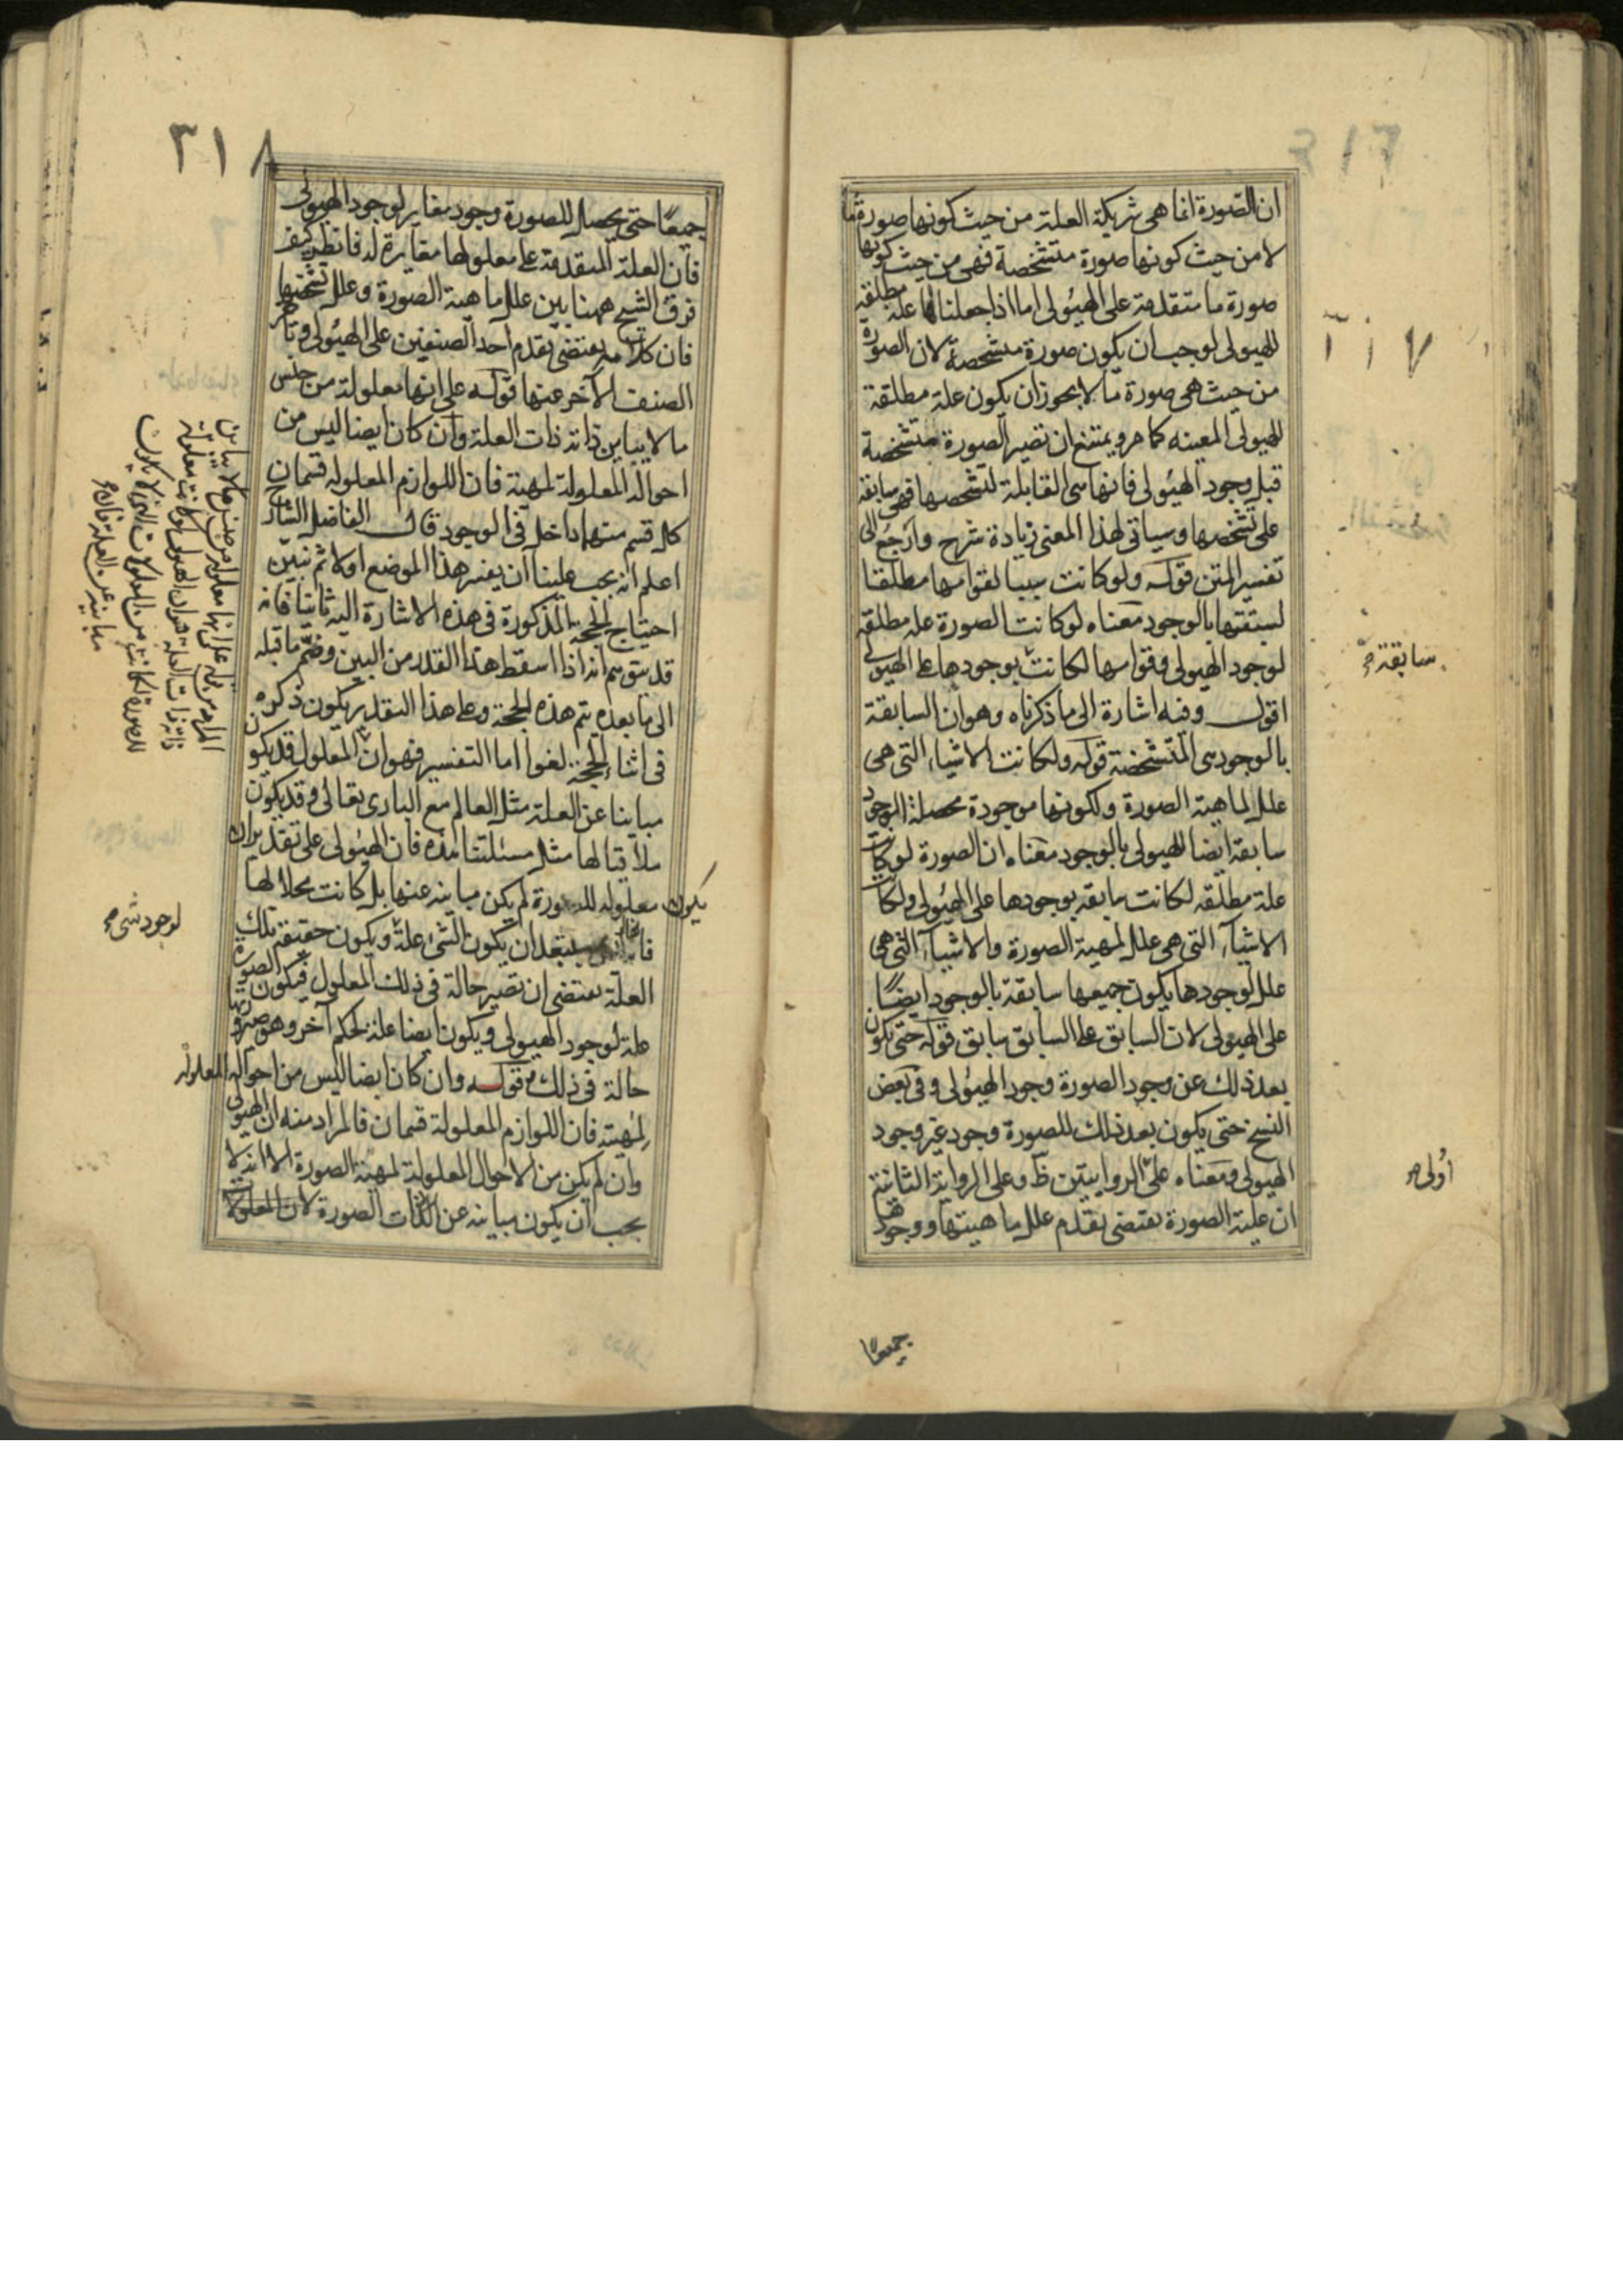 ٣١٧
ان الصورة انما هى شريكة العلة من حيث كونها صورة ما
لا من حيث كونها صورة متشخصة فهى من حيث كونها
صورة ما متقدمة على الهيولى اما اذا جعلناها علة مطلقة
للهيولى لوجب ان يكون صورة متشخصة لان الصورة
من حيث هى صورة ما لا يجوز ان يكون علة مطلقة
للهيولى المعينه كما مر ويمتنع ان تصير الصورة متشخصة
قبل وجود الهيولى فانها هى القابلة لتشخصها فهى سابقة
على تشخصها وسياتى لهذا المعنى زيادة شرح وارجع الى
تفسير المتن قوله ولو كانت سببا لقوامها مطلقا
لسبقتها بالوجود معناه لو كانت الصورة علة مطلقة
لوجود الهيولى وقوامها لكانت بوجودها على الهيولى
سابقة
اقول وفيه اشارة الى ما ذكرناه وهو ان السابقة
بالوجود هى المتشخصة قوله ولكانت الاشياء التى هى
علل لماهية الصورة ولكونها موجودة محصلة الوجود
سابقة ايضا للهيولى بالوجود معناه ان الصورة لو كانت
علة مطلقه لكانت سابقه بوجودها على الهيولى ولكانت
الاشياء التى هى علل لمهية الصورة والاشياء التى هى
علل لوجودها يكون جميعها سابقة بالوجود ايضا
على الهيولى لان السابق على السابق سابق قوله حتى يكون
بعد ذلك عن وجود الصورة وجود الهيولى وفى بعض
النسخ حتى يكون بعد ذلك للصورة وجود غير وجود
الهيولى ومعناه على الروايتين ظ وعلى الرواية الثانية
اولى
ان علية الصورة يقتضى تقدم علل ماهيتها ووجودها
جميعا
٣١٨
جميعا حتى يحصل للصورة وجود مغاير لوجود الهيولى
فان العلة المتقدمة على معلولها مغايرة له فانظر كيف
فرق الشيخ ههنا بين علل ماهية الصورة وعلل تشخصها
فان كلامه يقتضى تقدم احد الصنفين على الهيولى وتاخر
الصنف الآخر عنها قوله على انها معلولة من جنس
ما لا يباين ذاته ذات العلة وان كان ايضا ليس من
احواله المعلولة لمهية فان اللوازم المعلولة قسمان
كل قسم منهما داخل فى الوجود قال الفاضل الشارح
اعلم انه يجب علينا ان يفسر هذا الموضع اولا ثم نبين
احتياج الحجة المذكورة فى هذه الاشارة اليه ثانيا فانه
قد يتوهم انه اذا اسقط هذا القدر من البين وضم ما قبله
الى ما بعده يتم هذه الحجة وعلى هذا التقدير يكون ذكره
فى اثناء الحجة لغوا اما التفسير فهو ان المعلول قد يكون
مباينا عن العلة مثل العالم مع البارى تعالى وقد يكون
ملاقيا لها مثل مسئلتنا هذه فان الهيولى على تقدير ان
يكون معلوله للصورة لم يكن مباينه عنها بل كانت محلا لها
فانه ليس يستبعد ان يكون الشئ علة ويكون حقيقة تلك
لوجود شئ
العلة يقتضى ان تصير حالة فى ذلك المعلول فيكون الصورة
علة لوجود الهيولى ويكون ايضا علة لحكم آخر وهو صيرورتها
حالة فى ذلك قوله وان كان ايضا ليس من احواله المعلولة
لمهيته فان اللوازم المعلولة قسمان فالمراد منه ان الهيولى
وان لم يكن من الاحوال المعلولة لمهية الصورة الا انه لا
يجب ان يكون مباينه عن الذات الصورة لان المعلولات
المراد من قوله على انها معلولة من جنس ما لا يباين
ذاته ذات العلة هو ان الهيولى لو كانت معلولة
للصورة لكانت من المعلولات التى لا يكون
مباينه عن العلة فان